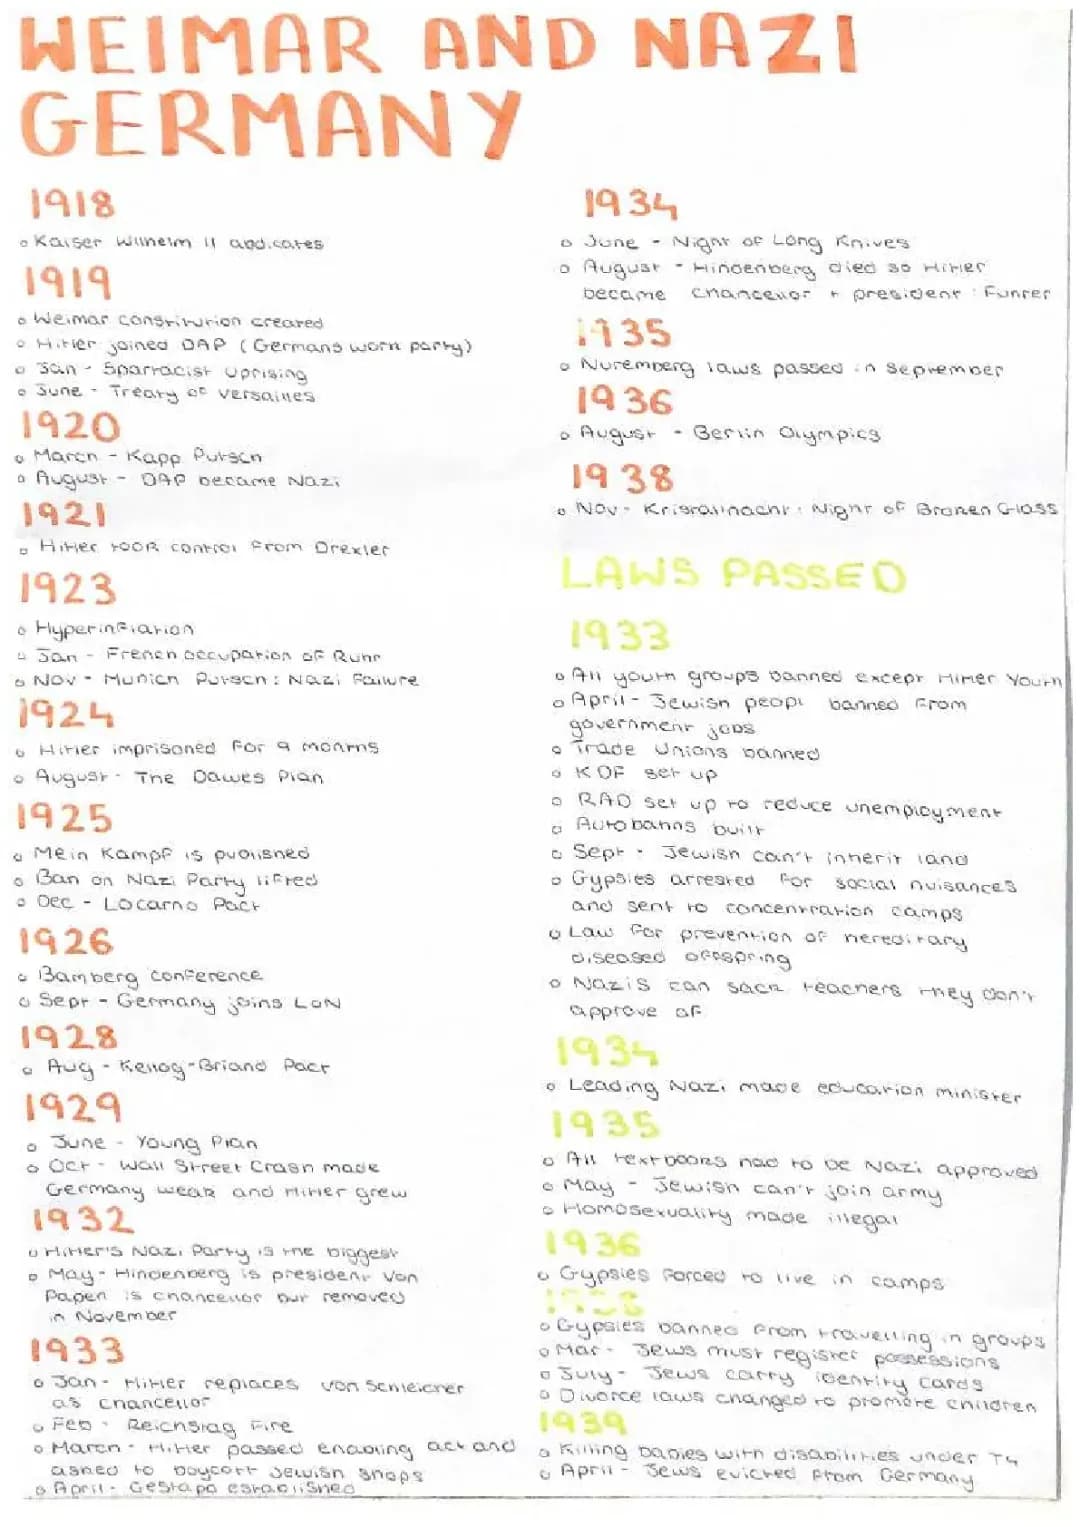 WEIMAR AND NAZI
GERMANY
1918
Kaiser Wilhelm II abdicates
1919
Weimar constitution created
Hitler joined DAP (Germans work party)
Jan - Spartacist Uprising
June - Treaty of Versailles
1920
March - Kapp Putsch
August - DAP became Nazi
1921
Hitler took control from Drexler
1923
Hyperinflation
Jan - French occupation of Ruhr
Nov - Munich Putsch: Nazi Failure
1924
Hitler imprisoned for 9 months
August - The Dawes Plan
1925
Mein Kampf is published
Ban on Nazi Party lifted
Dec - Locarno Pact
1926
Bamberg conference
Sept - Germany joins LoN
1928
Aug - Kellog-Briand Pact
1929
June - Young Plan
Oct - Wall Street Crash made
Germany weak and Hitler grew
1932
Hitler's Nazi Party is the biggest
May - Hindenberg is president Von
Papen is chancellor but removed
in November
1933
Jan - Hitler replaces von Schleicher
as chancellor
Feb - Reichstag Fire
March - Hitler passed enabling act and
asked to boycott Jewish shops
April - Gestapo established
1934
June - Night of Long Knives
August - Hindenberg died so Hitler
became chancellor + president : Fuhrer
1935
Nuremberg laws passed in September
1936
August - Berlin Olympics
1938
Nov - Kristallnacht: Night of Broken Glass
LAWS PASSED
1933
All youth groups banned except Hitler Youth
April - Jewish peopl banned from
government jobs
Trade Unions banned
KDF set up
RAD set up to reduce unemployment
Autobahns built
Sept - Jewish can't inherit land
Gypsies arrested for social nuisances
and sent to concentration camps
Law for prevention of hereditary
diseased offspring
Nazis can sack teachers they don't
approve of
1934
Leading Nazi made education minister
1935
All textbooks had to be Nazi approved
May - Jewish can't join army
Homosexuality made illegal
1936
Gypsies forced to live in camps
1938
Gypsies banned from travelling in groups
Mar - Jews must register possessions
July - Jews carry identity cards
Divorce laws changed to promote children
1939
Killing babies with disabilities under T4
April - Jews evicted from Germany